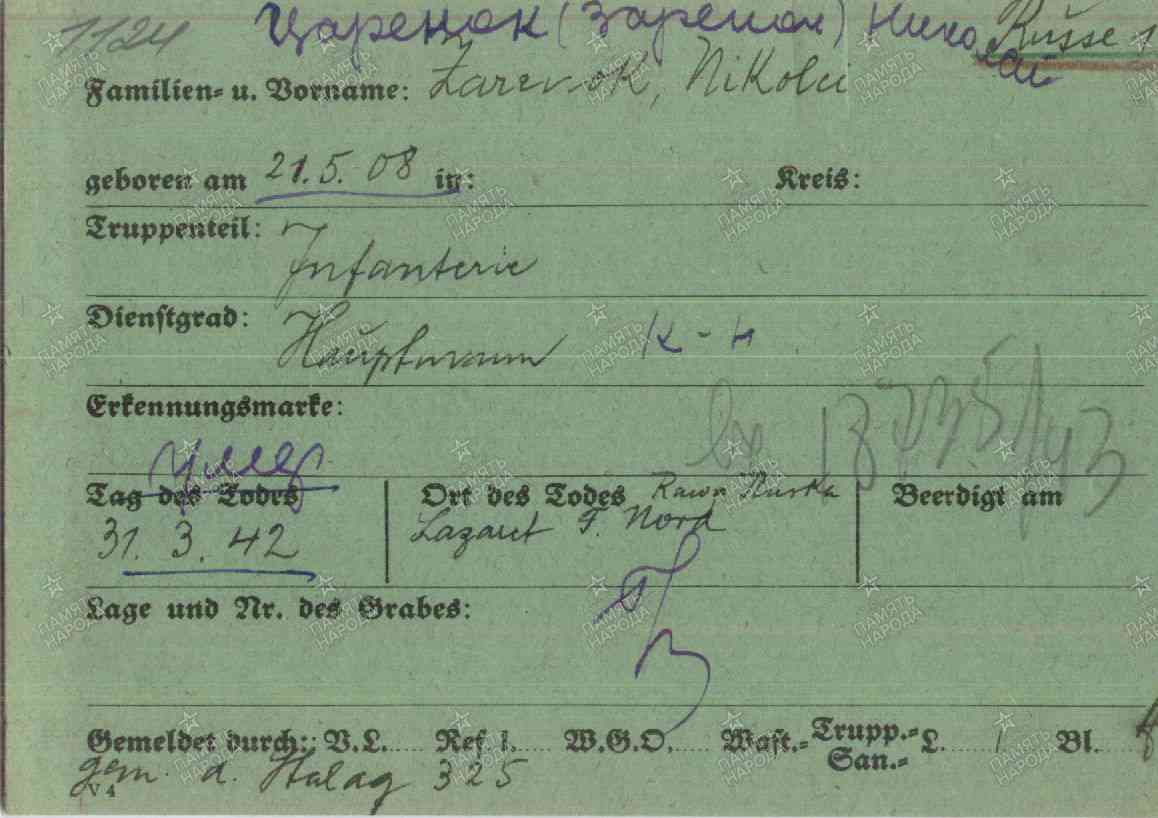 1124 Царенок (Заренок) Николай Russe
Familien= u. Vorname: Zarenok, Nikolai
geboren am 21.5.08 in: Kreis:
Truppenteil: Infanterie
Dienstgrad: Hauptmann к-н
Erkennungsmarke:
умер
Tag des Todes Ort des Todes Rawa Ruska Beerdigt am
31.3.42 Lazaret F. Nord
Lage und Nr. des Grabes:
Gemeldet durch: V.L. Ref. W.G.O. Wast.= Trupp.= L. Bl.
San.=
gem. d. Stalag 325
V 4
ПАМЯТЬ НАРОДА